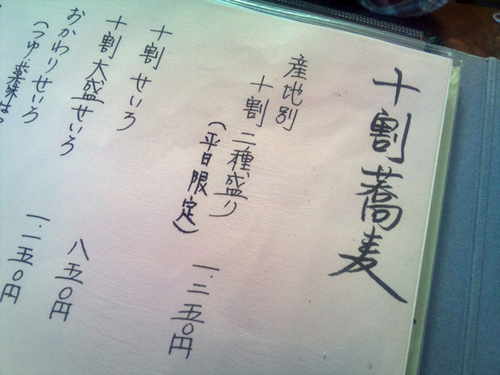 十割蕎麦
産地別
十割二種盛り
(平日限定)
一.二五〇円
十割せいろ
八五〇円
十割大盛せいろ
一.一五〇円
おかわりせいろ
(つゆ・薬味は